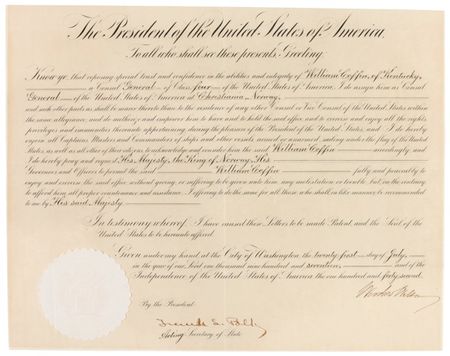 The President of the United States of America.
To all who shall see these presents, Greeting:
Know ye, that reposing special trust and confidence in the abilities and integrity of William Coffin, of Kentucky,
a Consul General of Class four of the United States of America, I do assign him as Consul
General of the United States of America at Christiania, Norway,
and such other parts as shall be nearer thereto than to the residence of any other Consul or Vice Consul of the United States within
the same allegiance; and do authorize and empower him to have and to hold the said office and to exercise and enjoy all the rights,
privileges and immunities thereunto appertaining during the pleasure of the President of the United States, and I do hereby
enjoin all Captains, Masters and Commanders of ships and other vessels, armed or unarmed, sailing under the flag of the United
States, as well as all other of their citizens, to acknowledge and consider him the said William Coffin accordingly, and
I do hereby pray and request His Majesty, the King of Norway, His
Governors and Officers to permit the said William Coffin fully and peaceably to
enjoy and exercise the said office without giving, or suffering to be given unto him, any molestation or trouble, but on the contrary
to afford him all proper countenance and assistance; I offering to do the same for all those who shall in like manner be recommended
to me by His said Majesty
In testimony whereof, I have caused these Letters to be made Patent, and the Seal of the
United States to be hereunto affixed.
Given under my hand, at the City of Washington the twenty first day of July,
in the year of our Lord one thousand nine hundred and seventeen, and of the
Independence of the United States of America the one hundred and forty-second.
Woodrow Wilson
By the President:
Frank L. Polk
Acting Secretary of State